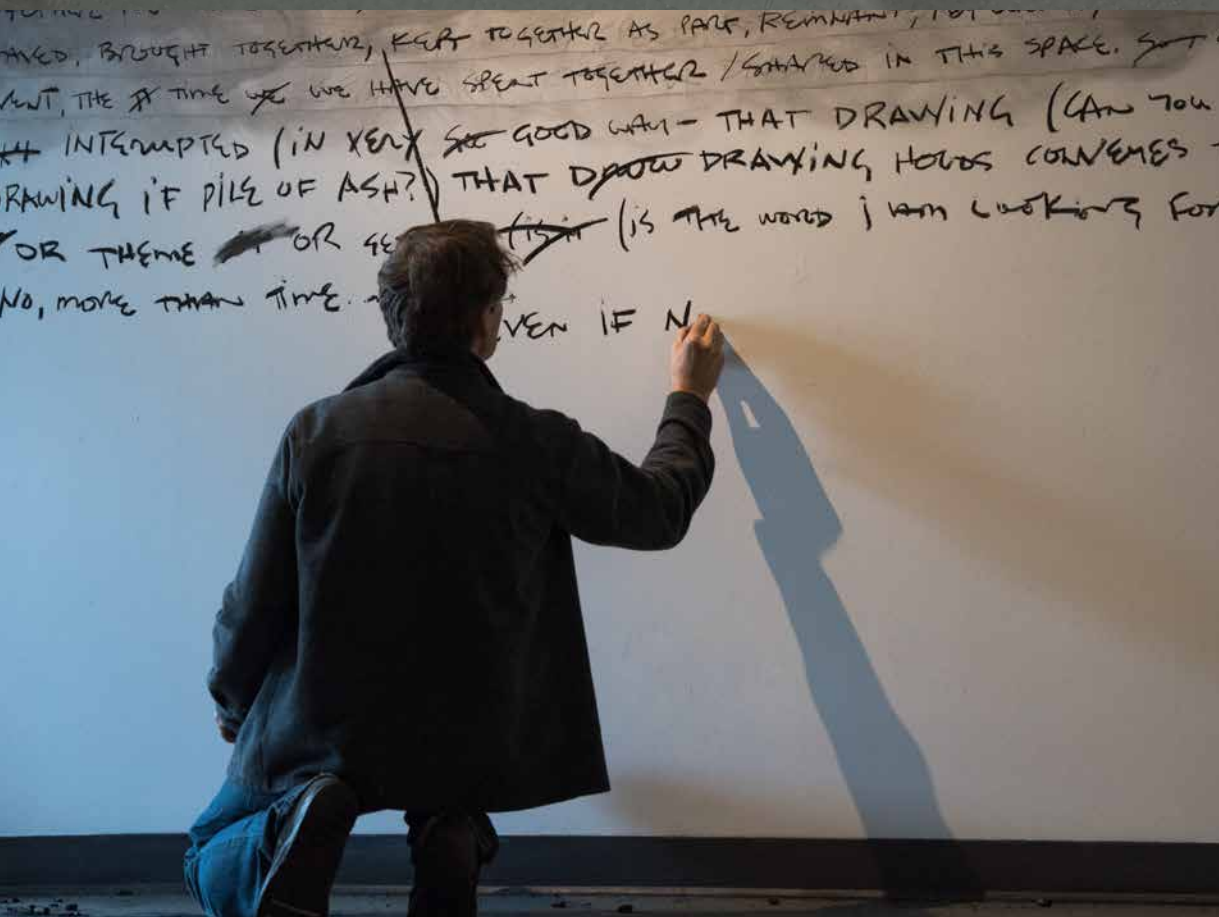 BROUGHT TOGETHER, KEPT TOGETHER AS PART, REMNANT,
THE TIME WE HAVE SPENT TOGETHER / SHARED IN THIS SPACE.
INTERRUPTED (IN VERY GOOD WAY - THAT DRAWING (CAN YOU
RAWING IF PILE OF ASH?) THAT DRAWING HOLDS CONVENES
OR THEME OR (IS THE WORD I AM LOOKING FOR
NO, MORE THAN TIME.
VEN IF N